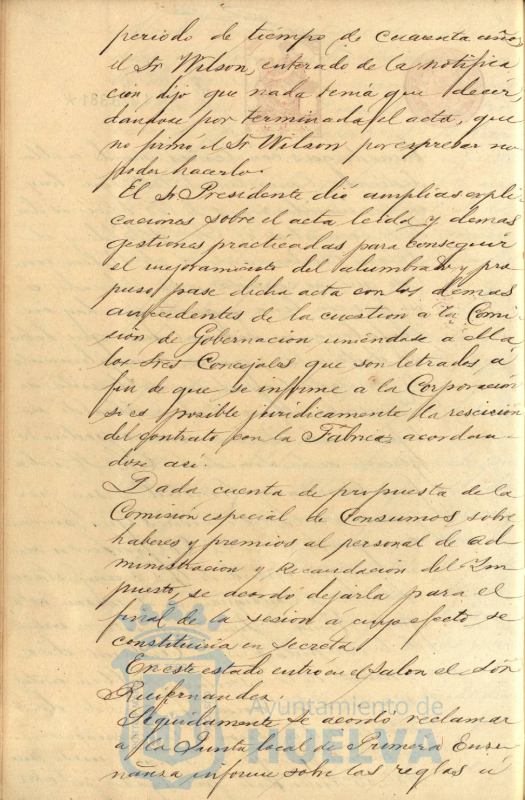 periodo de tiempo de cuarenta años,
el Sr Wilson, enterado de la notifica
cion dijo que nada tenia que decir,
dandose por terminada el acta, que
no firmó el Sr Wilson por expresar no
poder hacerlo.
El Sr Presidente dió amplias expli
caciones sobre el acta leida y demas
gestiones practicadas para conseguir
el mejoramiento del alumbrado y pro
puso pase dicha acta con los demas
antecedentes de la cuestion á la Comi
sión de Gobernacion uniéndose á ella
los Sres Concejales que son letrados á
fin de que se informe a la Corporación
si es posible juridicamente la rescición
del contrato con la Fabrica, acordan-
dose asi.
Dada cuenta de propuesta de la
Comisión especial de Consumos sobre
haberes y premios al personal de ad
ministracion y Recaudación del Im
puesto, se acordó dejarla para el
final de la sesión á cuyo efecto se
constituiria en secreta.
En este estado entró en el Salon el Sór
Ruifernandez.
Seguidamente se acordo reclamar
a la Junta local de Primera Ense
ñanza informe sobre las reglas á
Ayuntamiento de
HUELVA